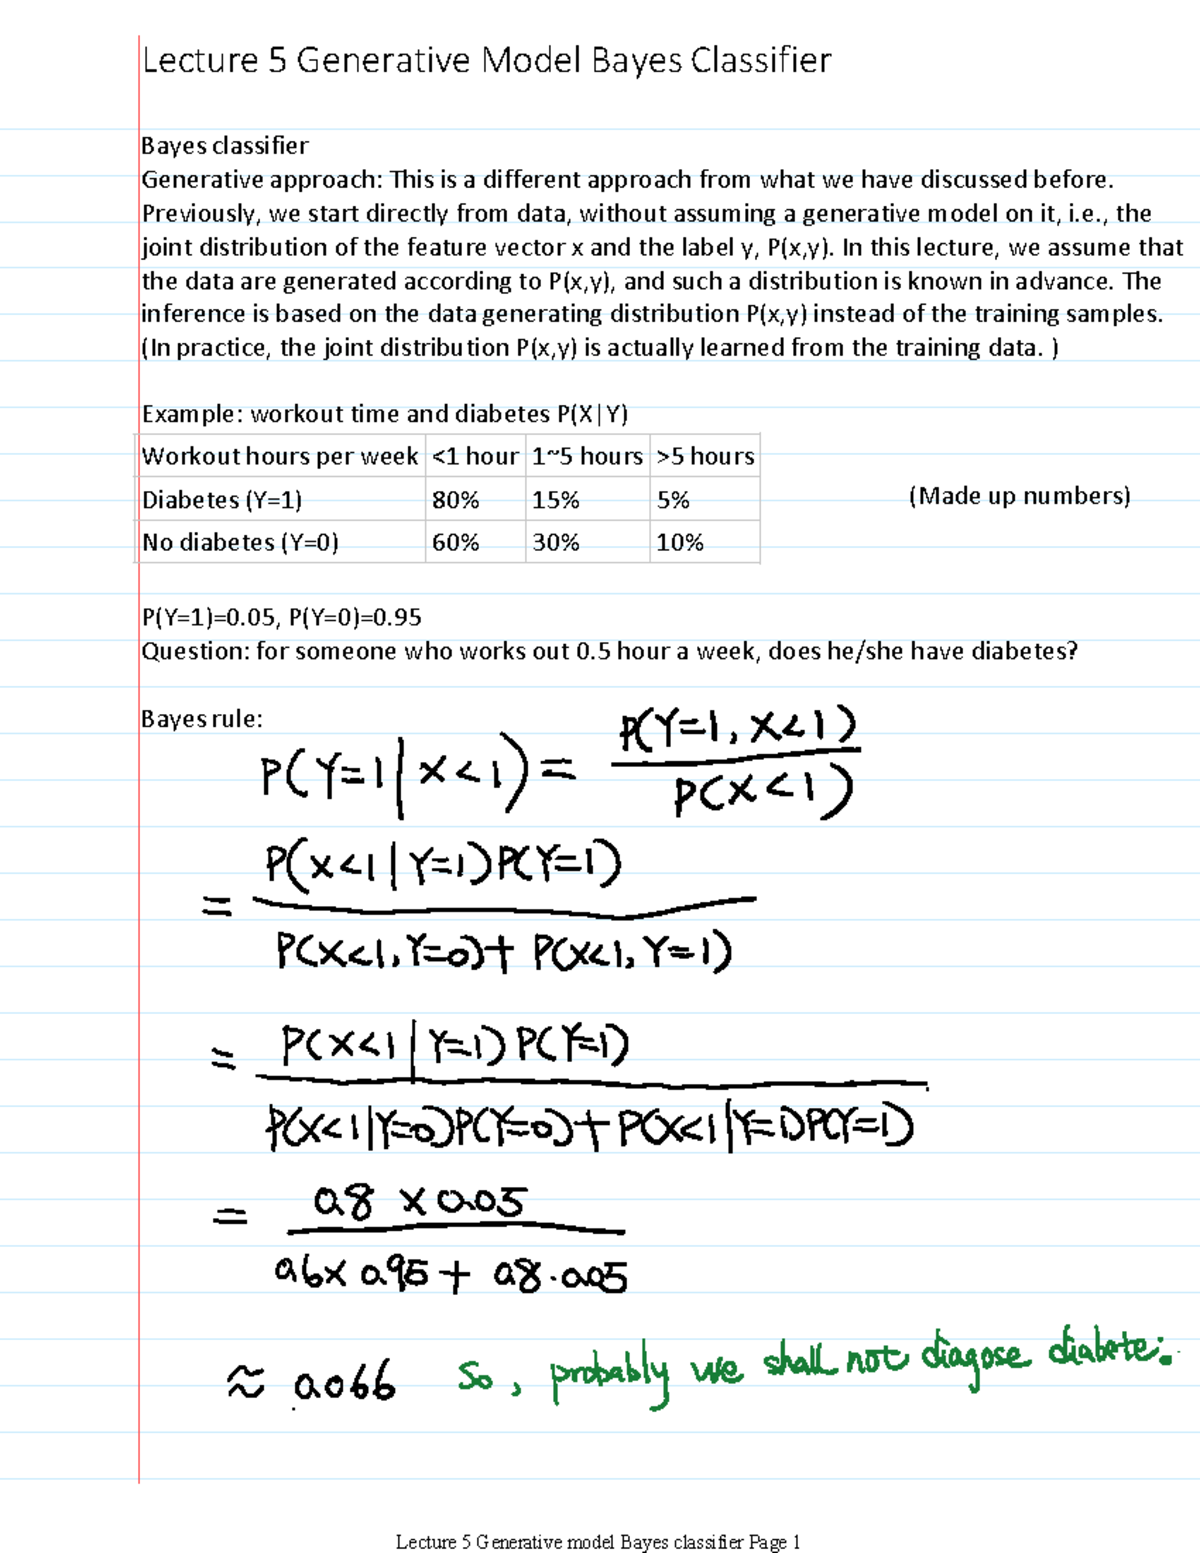 Lecture 5 Generative Model Bayes Classifier
Bayes classifier
Generative approach: This is a different approach from what we have discussed before.
Previously, we start directly from data, without assuming a generative model on it, i.e., the
joint distribution of the feature vector x and the label y, P(x,y). In this lecture, we assume that
the data are generated according to P(x,y), and such a distribution is known in advance. The
inference is based on the data generating distribution P(x,y) instead of the training samples.
(In practice, the joint distribution P(x,y) is actually learned from the training data. )
Example: workout time and diabetes P(X|Y)
Workout hours per week <1 hour 1~5 hours >5 hours
Diabetes (Y=1) 80% 15% 5%
(Made up numbers)
No diabetes (Y=0) 60% 30% 10%
P(Y=1)=0.05, P(Y=0)=0.95
Question: for someone who works out 0.5 hour a week, does he/she have diabetes?
Bayes rule:
P(Y=1, X<1)
P(Y=1|X<1) =
P(X<1)
P(X<1|Y=1)P(Y=1)
=
P(X<1, Y=0)+ P(X<1, Y=1)
= P(X<1|Y=1) P(Y=1)
P(X<1|Y=0)P(Y=0)+P(X<1|Y=1)P(Y=1)
= 0.8 × 0.05
0.6× 0.95 + 0.8·0.05
≈ 0.066 So, probably we shall not diagose diabete.
Lecture 5 Generative model Bayes classifier Page 1